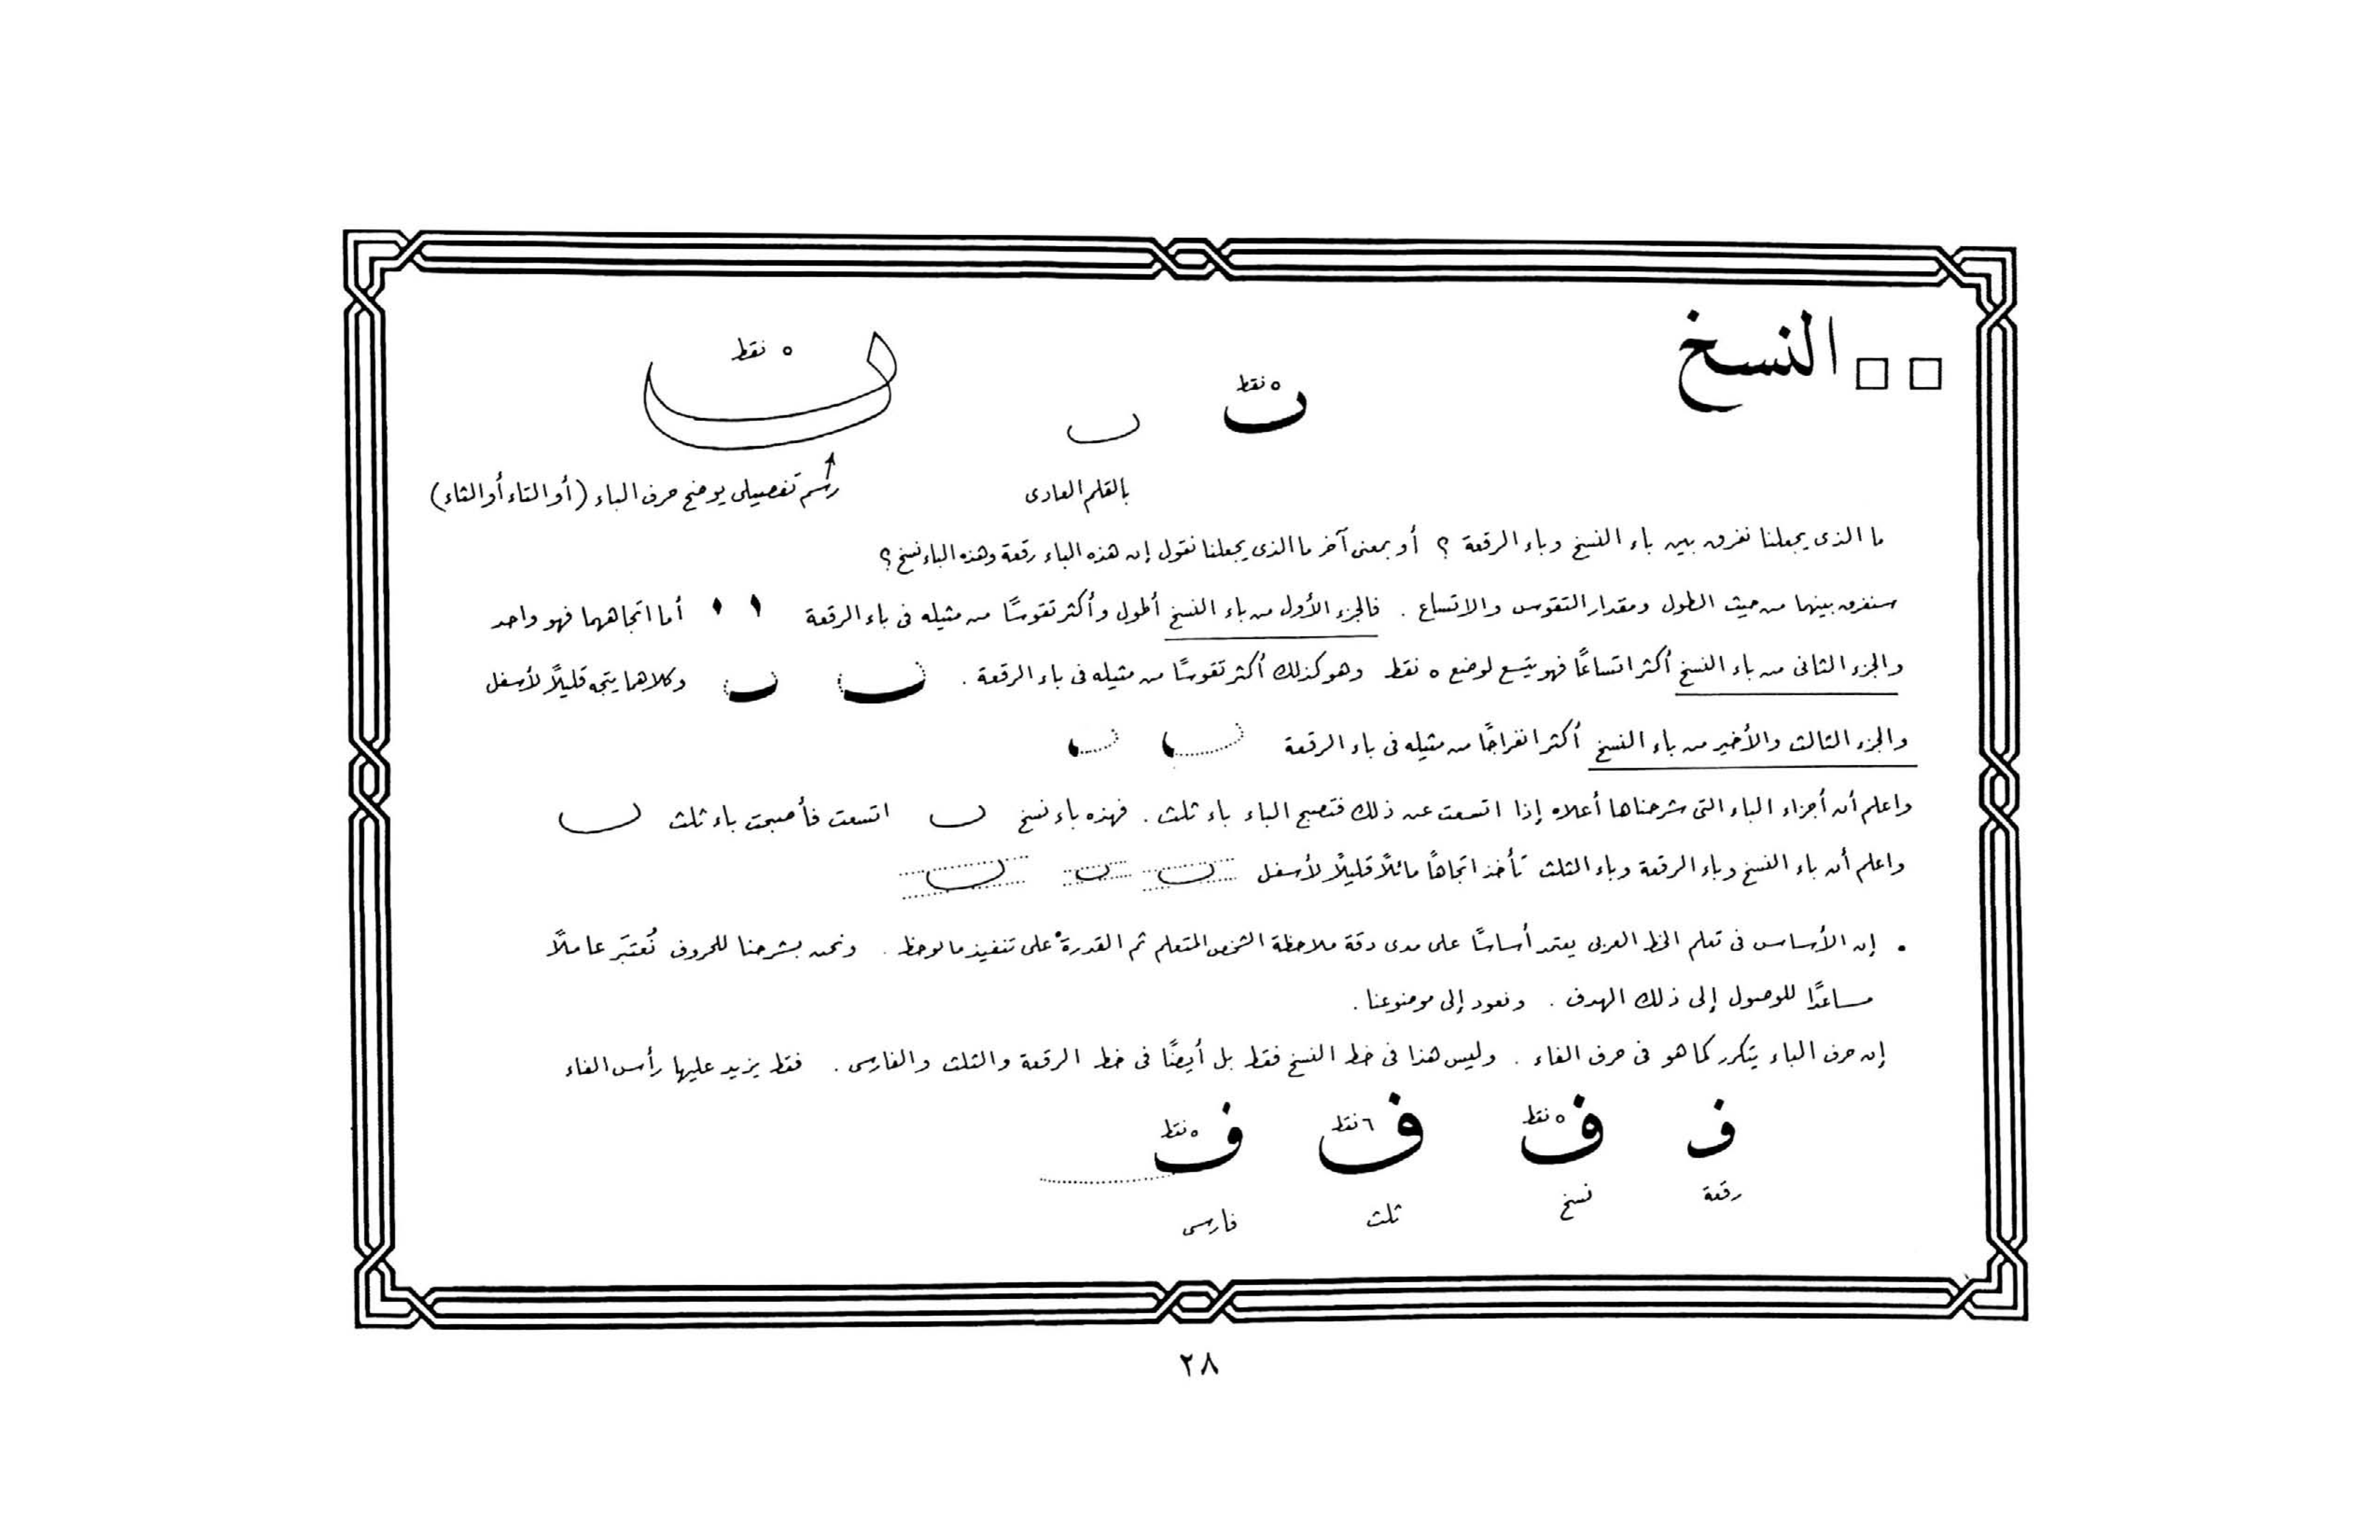 النسخ
٥ نقط
٥ نقط
بالقلم العادى
رسم تفصيلى يوضح حرف الباء (أو التاء أو الثاء)
ما الذى يجعلنا نفرق بين باء النسخ وباء الرقعة ؟ أو بمعنى آخر ما الذى يجعلنا نقول إن هذه الباء رقعة وهذه الباء نسخ ؟
سنفرق بينهما من حيث الطول ومقدار التقوس والاتساع . فالجزء الأول من باء النسخ أطول وأكثر تقوسًا من مثيله فى باء الرقعة أما اتجاههما فهو واحد
والجزء الثانى من باء النسخ أكثر اتساعًا فهو يتسع لوضع ٥ نقط وهو كذلك أكثر تقوسًا من مثيله فى باء الرقعة . وكلاهما يتجه قليلًا لأسفل
والجزء الثالث والأخير من باء النسخ أكثر انفراجًا من مثيله فى باء الرقعة
واعلم أن أجزاء الباء التى شرحناها أعلاه إذا اتسعت عن ذلك فتصبح الباء باء ثلث . فهذه باء نسخ ں اتسعت فأصبحت باء ثلث ں
واعلم أن باء النسخ وباء الرقعة وباء الثلث تأخذ اتجاهاً مائلًا قليلًا لأسفل
• إن الأساس فى تعلم الخط العربى يعتمد أساسًا على مدى دقة ملاحظة الشخص المتعلم ثم القدرة على تنفيذ ما لوحظ . ونحن بشرحنا للحروف نُعتبَر عاملًا
مساعدًا للوصول إلى ذلك الهدف . ونعود إلى موضوعنا .
إن حرف الباء يتكرر كما هو فى حرف الفاء . وليس هذا فى خط النسخ فقط بل أيضًا فى خط الرقعة والثلث والفارسى . فقط يزيد عليها رأس الفاء
ف ف ٥ نقط ف ٦ نقط ف ٥ نقط
رقعة نسخ ثلث فارسى
٢٨